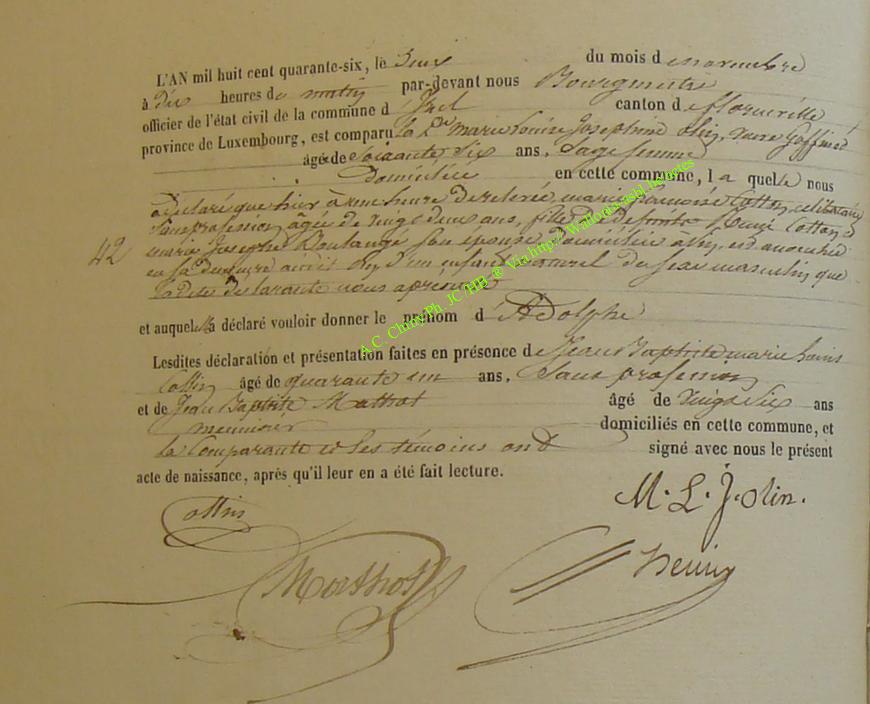 L'AN mil huit cent quarante-six, le Deux du mois de novembre
à dix heures du matin par-devant nous Bourgmestre
officier de l'état civil de la commune d'Izel canton de florenville
province de Luxembourg, est comparu la Dme marie Louise Josephine Olin, veuve Goffinet
âgée de Soixante Six ans, Sage femme
Domiciliée en cette commune, laquelle nous
a déclaré que hier à une heure de relevée, marie françoise Cotton, célibataire
Sans profession, âgée de vingt deux ans, fille de Cotton et
42
marie Josephe Boulangé son épouse Domiciliée à est accouchée
en sa demeure audit d'un enfant naturel du sexe masculin que
la dite déclarante nous a présenté
et auquel Elle a déclaré vouloir donner le prénom d'Adolphe
Lesdites déclaration et présentation faites en présence de Jean Baptiste marie
Collin âgé de quarante un ans, Sans profession
et de Jean Baptiste Mathot âgé de vingt Six ans
meunier domiciliés en cette commune, et
la Comparante et les témoins ont signé avec nous le présent
acte de naissance, après qu'il leur en a été fait lecture.
M. L. J. Olin.
Collin
Mathot
A.C. Chiny/Ph. JC /HB @ Via http://Wallodia.asbl.net/notes